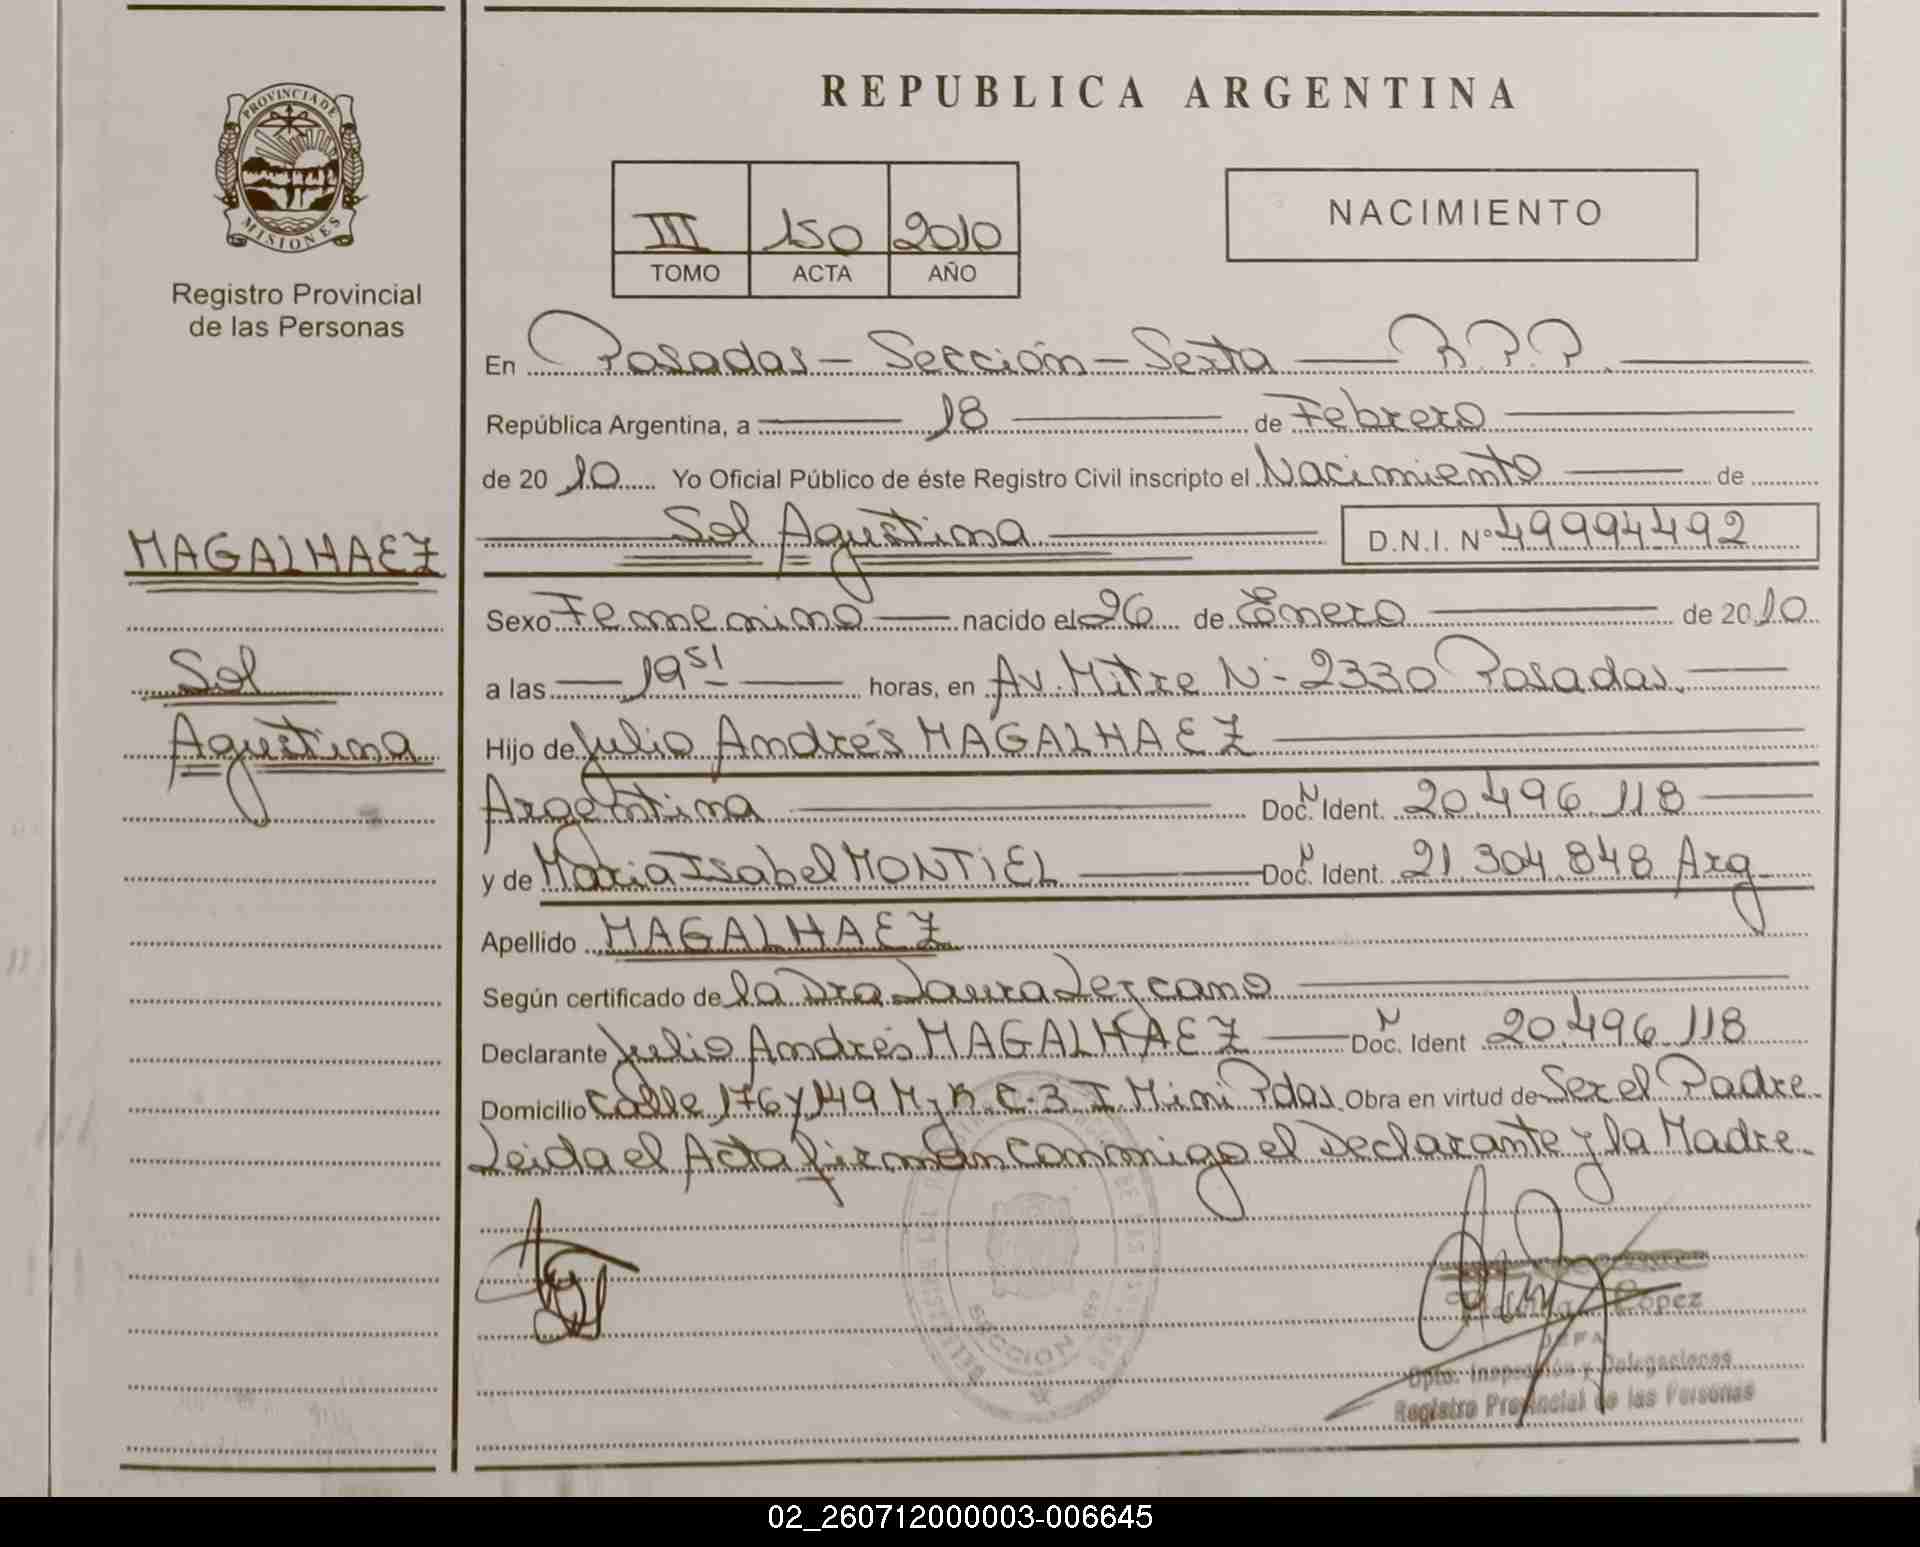 REPUBLICA ARGENTINA
PROVINCIA DE
MISIONES
Registro Provincial
de las Personas
III 150 2010
TOMO ACTA AÑO
NACIMIENTO
En Posadas - Sección - Sexta R.P.P.
República Argentina, a 18 de Febrero
de 2010 Yo Oficial Público de éste Registro Civil inscripto el Nacimiento de
MAGALHAEZ
Sol
Agustina
Sol Agustina D.N.I. Nº 49994492
Sexo Femenino nacido el 26 de Enero de 2010
a las 19 51 horas, en Av. Mitre N- 2330 Posadas.
Hijo de Julio Andrés MAGALHAEZ
Argentina Doc. N Ident. 20.496.118
y de Maria Isabel MONTIEL Doc. N Ident. 21.304.848 Arg
Apellido MAGALHAEZ
Según certificado de la Dra Laura Lezcano
Declarante Julio Andrés MAGALHAEZ Doc. N Ident 20.496.118
Domicilio Calle 176 y 149 C-3 I. Mini Pdas. Obra en virtud de Ser el Padre.
Leida el Acta firman conmigo el Declarante y la Madre.
SECCION
Lopez
JEFA
Dpto. Inspección y Delegaciones
Registro Provincial de las Personas
02_260712000003-006645